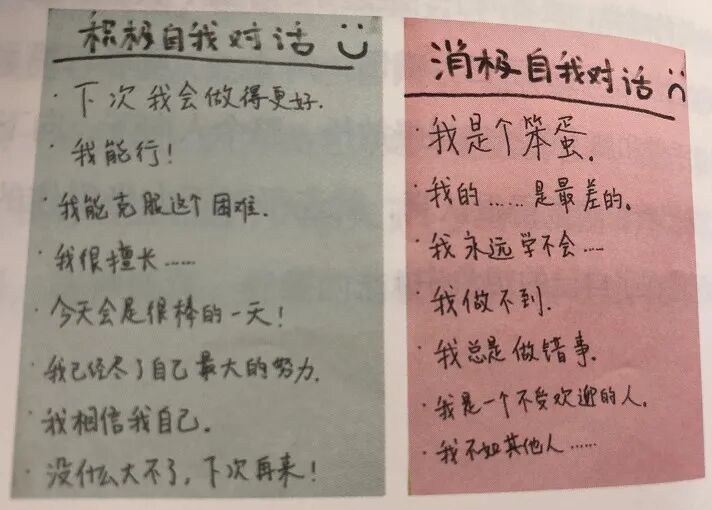 积极自我对话
· 下次我会做得更好.
· 我能行!
· 我能克服这个困难.
· 我很擅长……
· 今天会是很棒的一天!
· 我已经尽了自己最大的努力.
· 我相信我自己.
· 没什么大不了,下次再来!
消极自我对话
· 我是个笨蛋.
· 我的……是最差的。
· 我永远学不会……
· 我做不到.
· 我总是做错事.
· 我是一个不受欢迎的人.
· 我不如其他人……